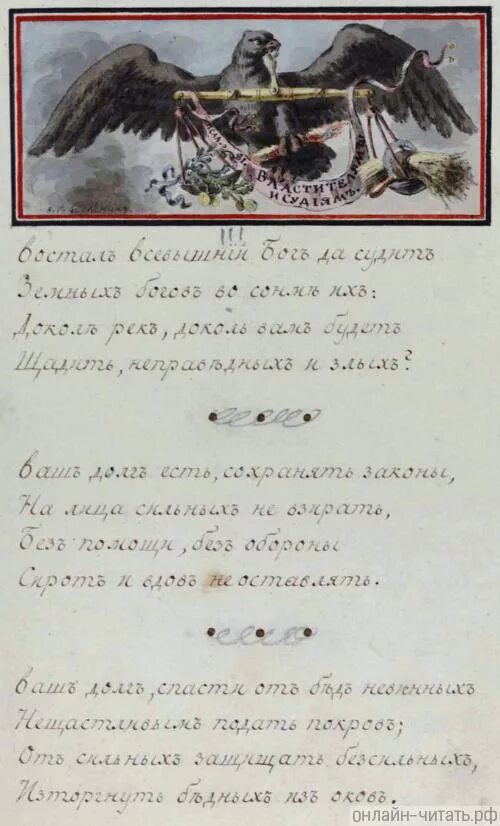 ВЛАСТИТЕЛЯМЪ
И СУДІЯМЪ.
III
Восталъ Всевышній Богъ да судитъ
Земныхъ боговъ во сонмѣ ихъ:
Доколѣ рекъ, доколь вамъ будетъ
Щадить, неправѣдныхъ и злыхъ?
Вашъ долгъ есть, сохранять законы,
На лица сильныхъ не взирать,
Безъ помощи, безъ обороны
Сиротъ и вдовъ не оставлять.
Вашъ долгъ, спасти отъ бѣдъ невинныхъ
Нещастливымъ подать покровъ;
Отъ сильныхъ защищать безсильныхъ,
Изторгнуть бѣдныхъ изъ оковъ.
онлайн-читать.рф